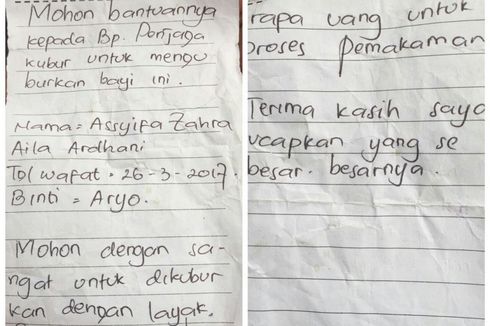 Mohon bantuannya
kepada Bp. Penjaga
kubur untuk mengu
burkan bayi ini.
Nama = Assyifa Zahra
Aila Ardhani
Tgl wafat . 26-3-2017.
Binti = Aryo.
Mohon dengan sa-
ngat untuk dikubur
kan dengan layak.
rapa uang untuk
proses pemakaman
Terima kasih saya
ucapkan yang se
besar. besarnya.